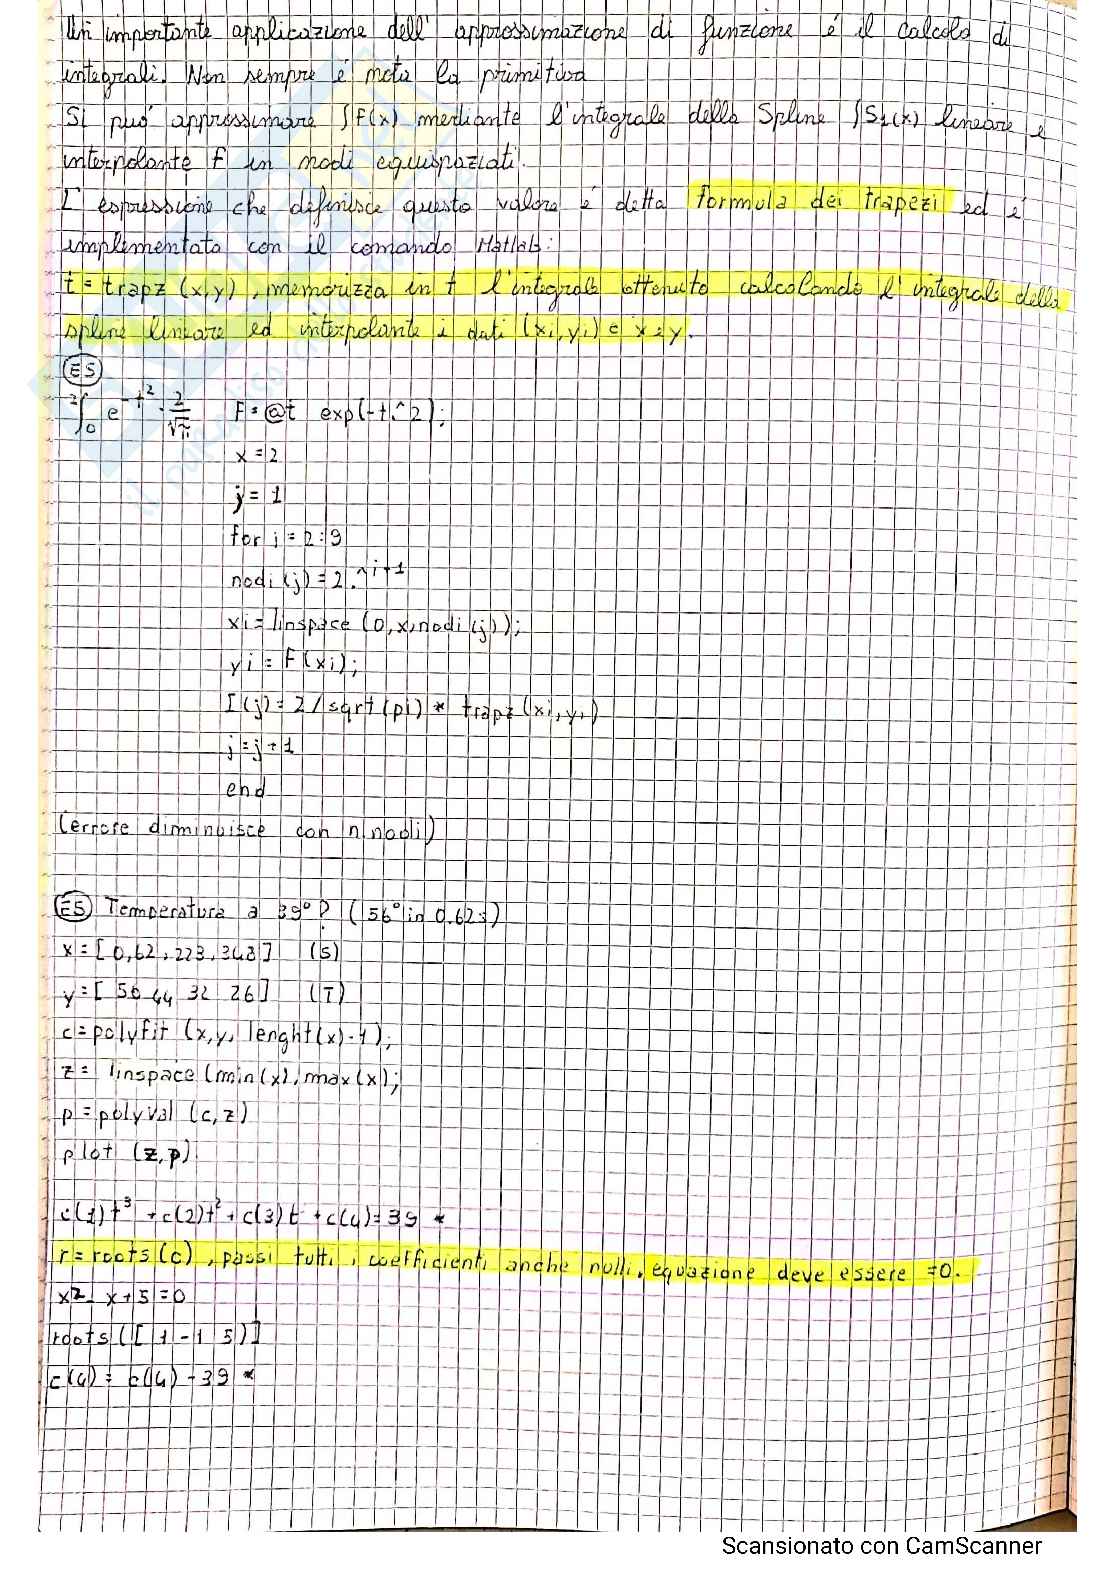 Un importante applicazione dell' approssimazione di funzione é il calcolo di
integrali. Non sempre é nota la primitiva
Si puó approssimare ∫F(x) mediante l'integrale della Spline ∫S1(x) lineare e
interpolante f in nodi equispaziati.
L' espressione che definisce questo valore é detta formula dei trapezi ed é
implementato con il comando Matlab:
t = trapz (x,y), memorizza in t l'integrale ottenuto calcolando l'integrale della
spline lineare ed interpolante i dati (xi, yi) e x e y.
ES
∫₀² e^-t² · 2/√π F = @t exp(-t.^2);
x = 2
j = 1
for i = 2:9
nodi (j) = 2.^i+1
xi = linspace (0, x, nodi (j));
yi = F(xi);
I(j) = 2/sqrt(pi) * trapz (xi, yi)
j = j+1
end
(errore diminuisce con n nodi)
ES Temperatura a 39°? (56° in 0.62s)
x = [0, 62, 223, 343] (s)
y = [56 44 32 26] (T)
c = polyfit (x,y, lenght(x)-1);
z = linspace (min(x), max(x);
p = polyval (c,z)
plot (z,p)
c(1)t³ + c(2)t² + c(3)t + c(4) = 39 *
r = roots (c), passi tutti i coefficienti anche nulli, equazione deve essere =0.
x2 - x+5 = 0
roots ([1 -1 5)]
c(4) = c(4) - 39 *
Scansionato con CamScanner